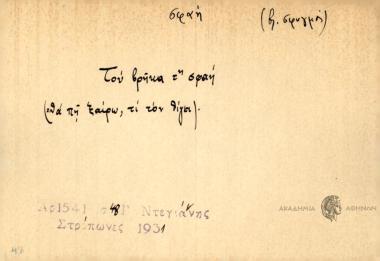 σφαή (βλ. σφυγμός)
Τοῦ βρῆκα τη σφαή
(θὰ πῇ ξαίρω, τί τὸν θίγει).
Αρ1541 σ48 Γ Ντεγιάννης
Στρόπωνες 1931
ΑΚΑΔΗΜΙΑ ΑΘΗΝΩΝ